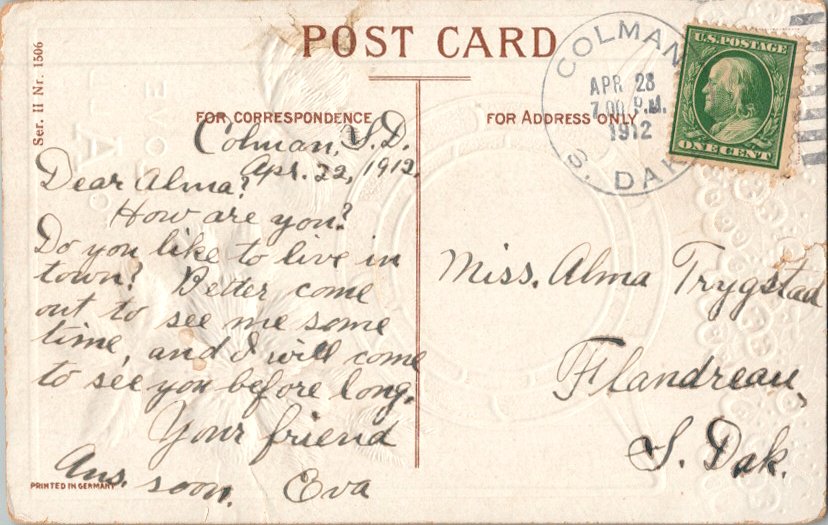 POST CARD
Ser. II Nr. 1506
FOR CORRESPONDENCE
Colman, S.D.
Apr. 22, 1912.
Dear Alma:
How are you?
Do you like to live in
town? Better come
out to see me some
time, and I will come
to see you before long.
Your friend
Ans. soon. Eva
PRINTED IN GERMANY
FOR ADDRESS ONLY
COLMAN
APR 28
7 00 P.M.
1912
S. DAK
U.S. POSTAGE
ONE CENT
Miss. Alma Trygstad
Flandreau,
S. Dak.